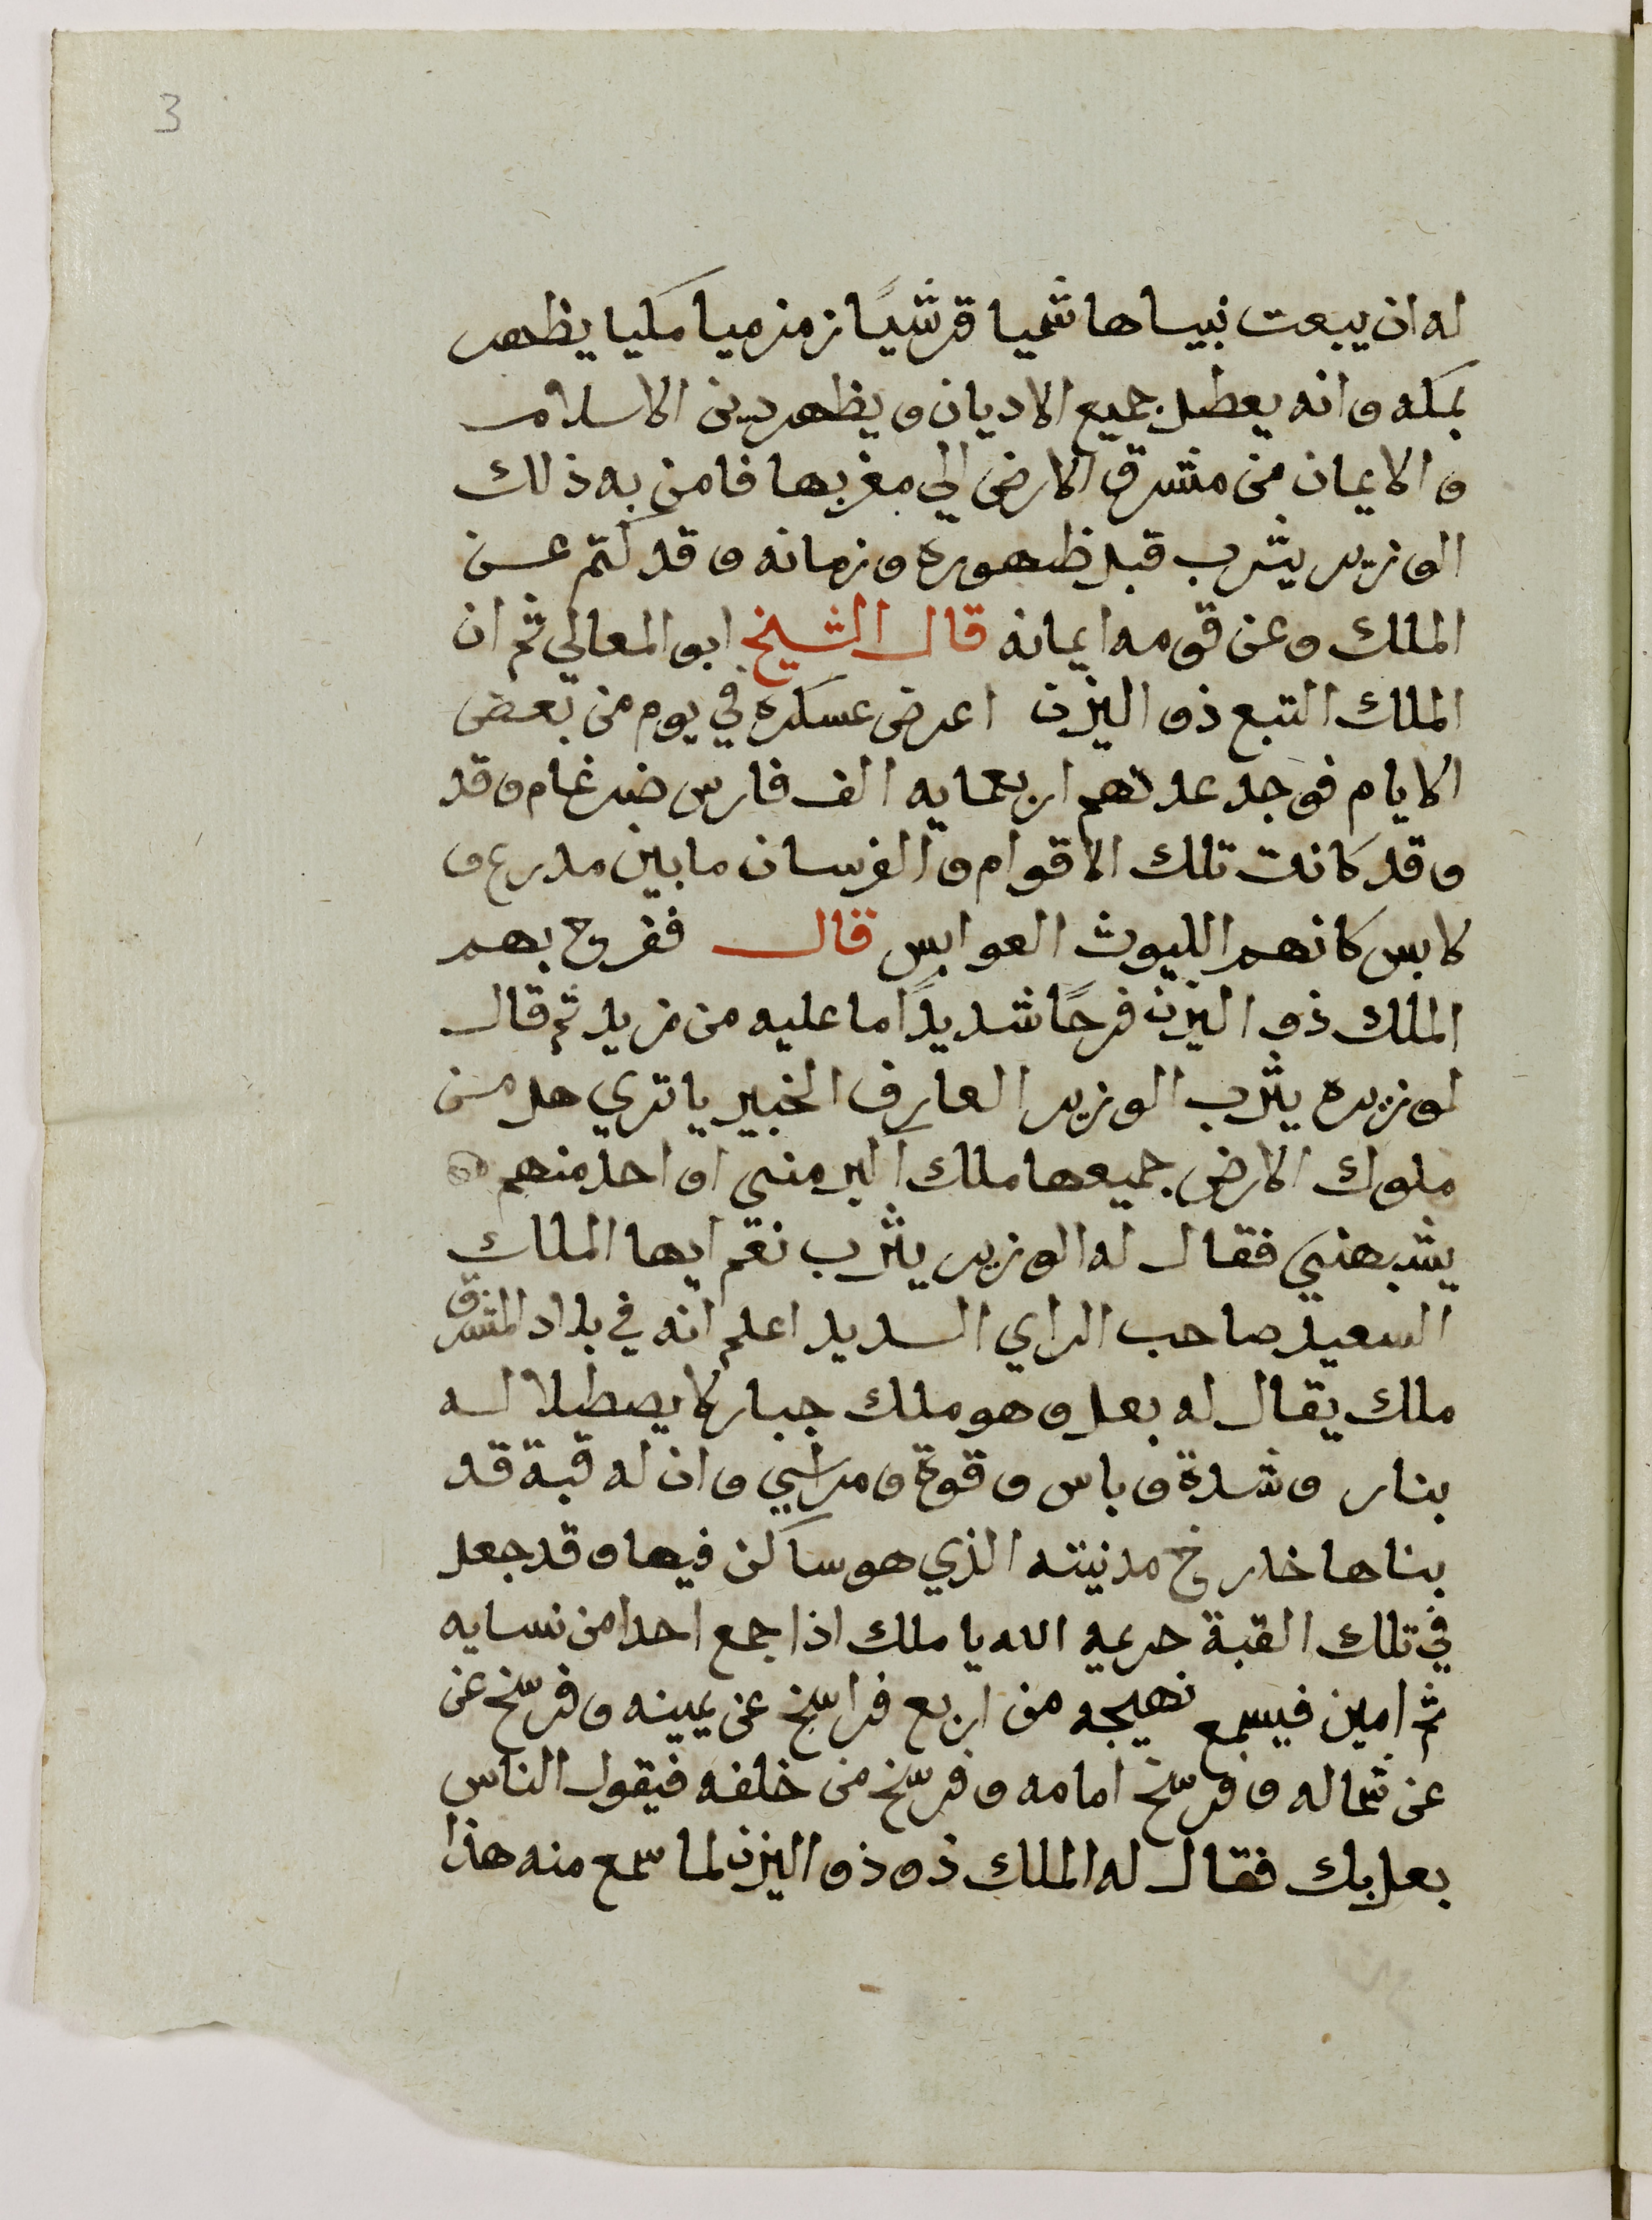 3
له ان يبعت نبيا هاشميا قرشيًا زمزميا مكيا يظهر
بمكه وانه يعطل جميع الاديان ويظهر دين الاسلام
والايمان من مشرق الارض الي مغربها فامن به ذلك
الوزير يثرب قبل ظهوره وزمانه وقد كتم عن
الملك وعن قومه ايمانه قال الشيخ ابو المعالي ثم ان
الملك التبع ذو اليزن اعرض عسكره في يوم من بعض
الايام فوجد عدتهم اربعمايه الف فارس ضرغام وقد
وقد كانت تلك الاقوام والفرسان ما بين مدرع و
لابس كانهم الليوث العوابس قال ففرح بهم
الملك ذو اليزن فرحًا شديدًا ما عليه من مزيد ثم قال
لوزيره يثرب الوزير العارف الخبير يا تري هل من
ملوك الارض جميعها ملك اكبر مني او احد منهم
يشبهني فقال له الوزير يثرب نعم ايها الملك
السعيد صاحب الراي السديد اعلم انه في بلاد المشرق
ملك يقال له بعل وهو ملك جبار لا يصطلا له
بنار وشدة وباس وقوة ومراسي وان له قبة قد
بناها خارج مدنيته الذي هو ساكن فيها وقد جعل
في تلك القبة حريمه الله يا ملك اذا جمع احدا من نسايه
ثم امين فيسمع نهيجه من اربع فراسخ عن يمينه وفرسخ عن
عن شماله وفرسخ امامه وفرسخ من خلفه فيقول الناس
بعل بك فقال له الملك ذو ذو اليزن لما سمع منه هذا